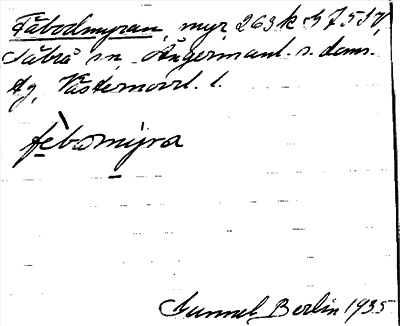 Fäbodmyran, myr 263 k 37 51 7,
Säbrå sn, Ångermanl. s. doms.
dg, Västernorrl. l.
fèbomyra
Gunnel Berlin 1935